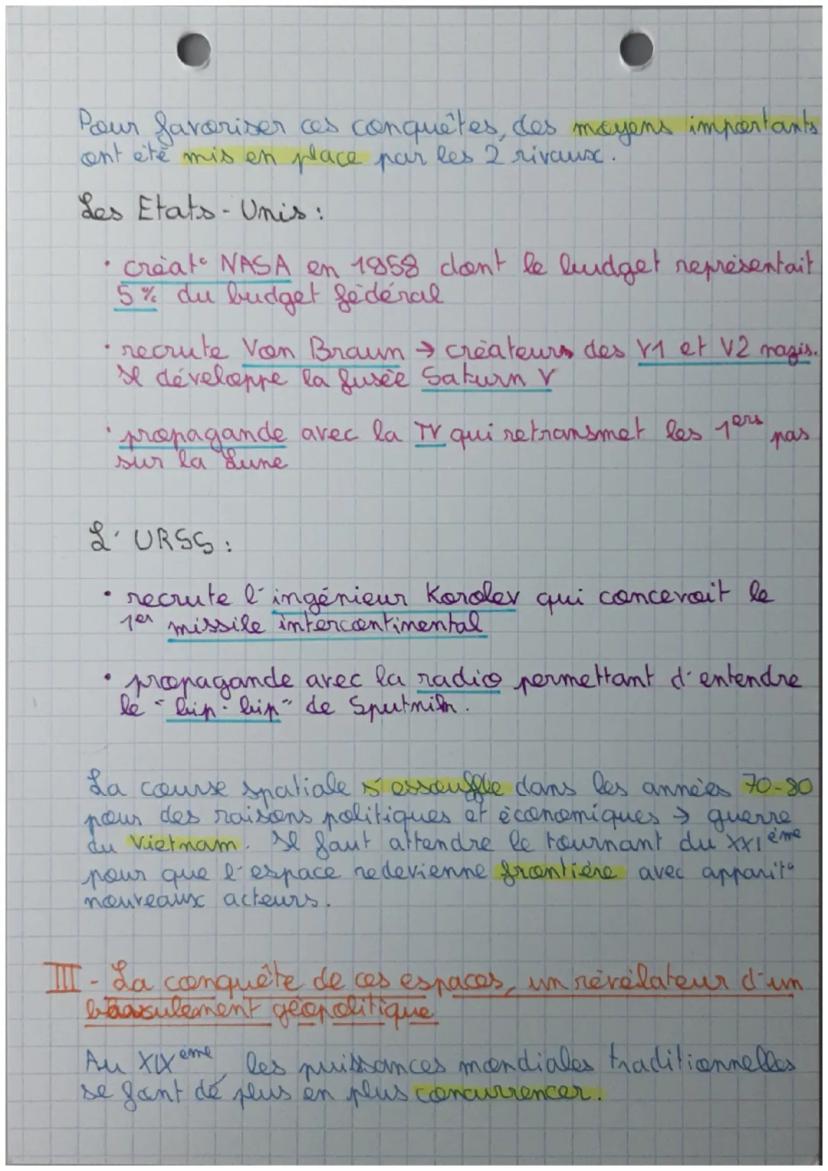 Pour favoriser ces conquêtes, des moyens importants
ont été mis en place par les 2 rivaux.
Les Etats-Unis :
• créat° NASA en 1958 dont le budget représentait
5% du budget fédéral
• recrute Von Braun → créateurs des V1 et V2 nazis.
Il développe la fusée Saturn V
• propagande avec la TV qui retransmet les 1ers pas
sur la Lune
L'URSS :
• recrute l'ingénieur Korolev qui concevait le
1er missile intercontinental
• propagande avec la radio permettant d'entendre
le "bip-bip" de Sputnik.
La course spatiale s'essouffle dans les années 70-80
pour des raisons politiques et économiques → guerre
du Vietnam. Il faut attendre le tournant du XXIème
pour que l'espace redevienne frontière avec apparit°
nouveaux acteurs.
III - La conquête de ces espaces, un révélateur d'un
basculement géopolitique
Au XIXème, les puissances mondiales traditionnelles
se font de plus en plus concurrencer.